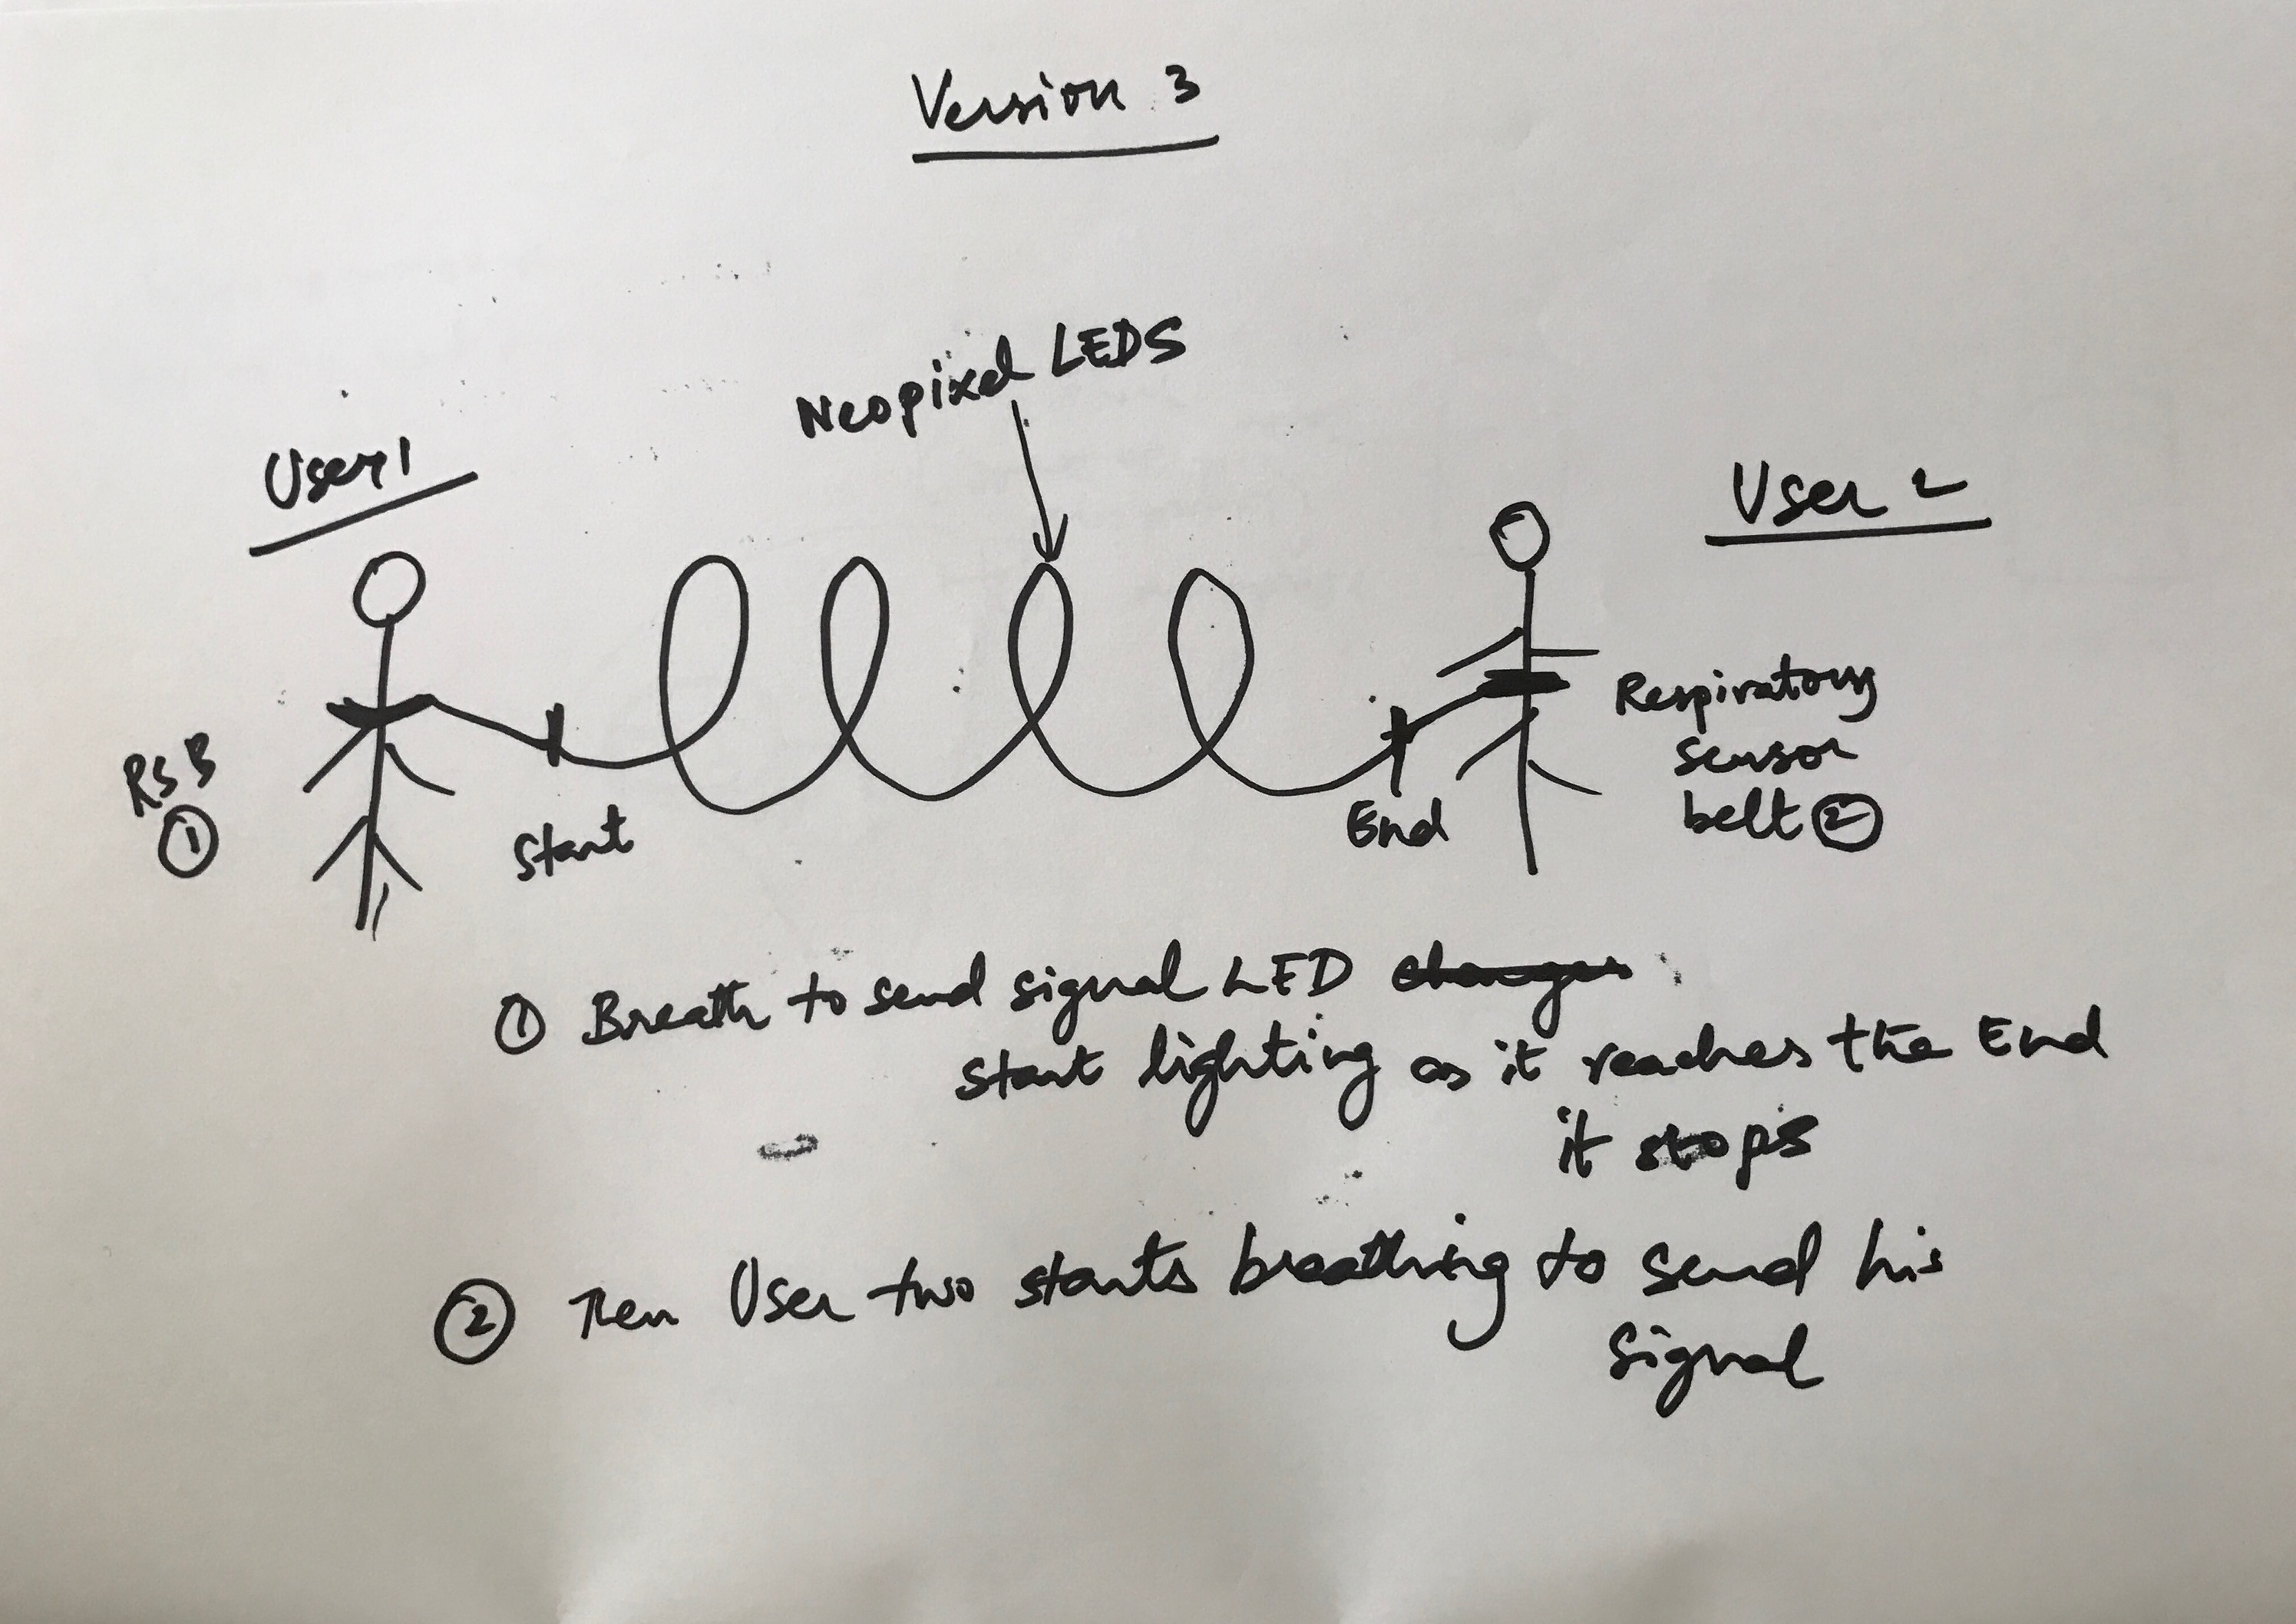 Version 3
Neopixel LEDS
User 1
User 2
RSB
①
Start
End
Respiratory
sensor
belt ②
① Breath to send signal LED changes
start lighting as it reaches the End
it stops
② Then User two starts breathing to send his
signal